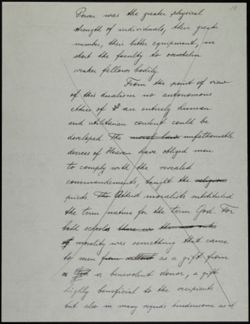 Power was the greater physical
strength of individuals, their greater
number, their better equipment, in
short the faculty to
weaker fellows bodily.
From the point of view
of this dualism no autonomous
ethics of an entirely human
and utilitarian content could be
developed. The unfathomable
decrees of Heaven have obliged men
to comply with the revealed
commandments, taught the religious
moralists substituted
the term justice for the term God. For
both schools
of morality was something that came
to men from without as a gift from
a benevolent donor, a gift
highly beneficial to the recipients
but also in many regards burdensome and